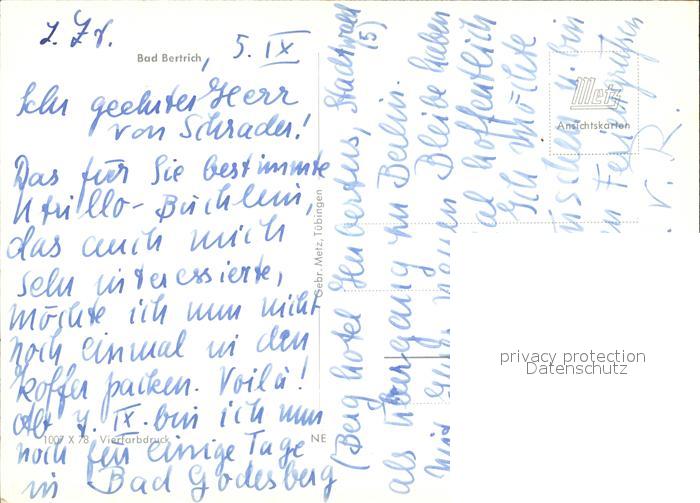 z. Zt.
Bad Bertrich, 5. IX
Sehr geehrter Herr
von Schrader!
Das für Sie bestimmte
Utrillo-Büchlein,
das auch mich
sehr interessierte,
möchte ich nun nicht
noch einmal in den
Koffer packen. Voilà!
Ab 7. IX. bin ich nun
noch für einige Tage
in Bad Godesberg
(Berghotel Hubertus, Stadtwald
(5)
als Übergang zu Berlin.
Bleibe haben
hoffentlich
Ich möchte
bin
Feriengrüßen
v. R.
Gebr. Metz, Tübingen
Metz
Ansichtskarten
1007 X 78 Vierfarbdruck
NE
privacy protection
Datenschutz